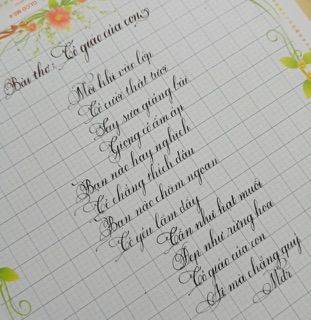 Bài thơ: Cô giáo của con
Mỗi khi vào lớp
Cô cười thật tươi
Say sưa giảng bài
Giọng cô ấm áp
Bạn nào hay nghịch
Cô chẳng thích đâu
Bạn nào chăm ngoan
Cô yêu lắm đấy
Cần như hạt muối
Đẹp như rừng hoa
Cô giáo của con
Ai mà chẳng quý